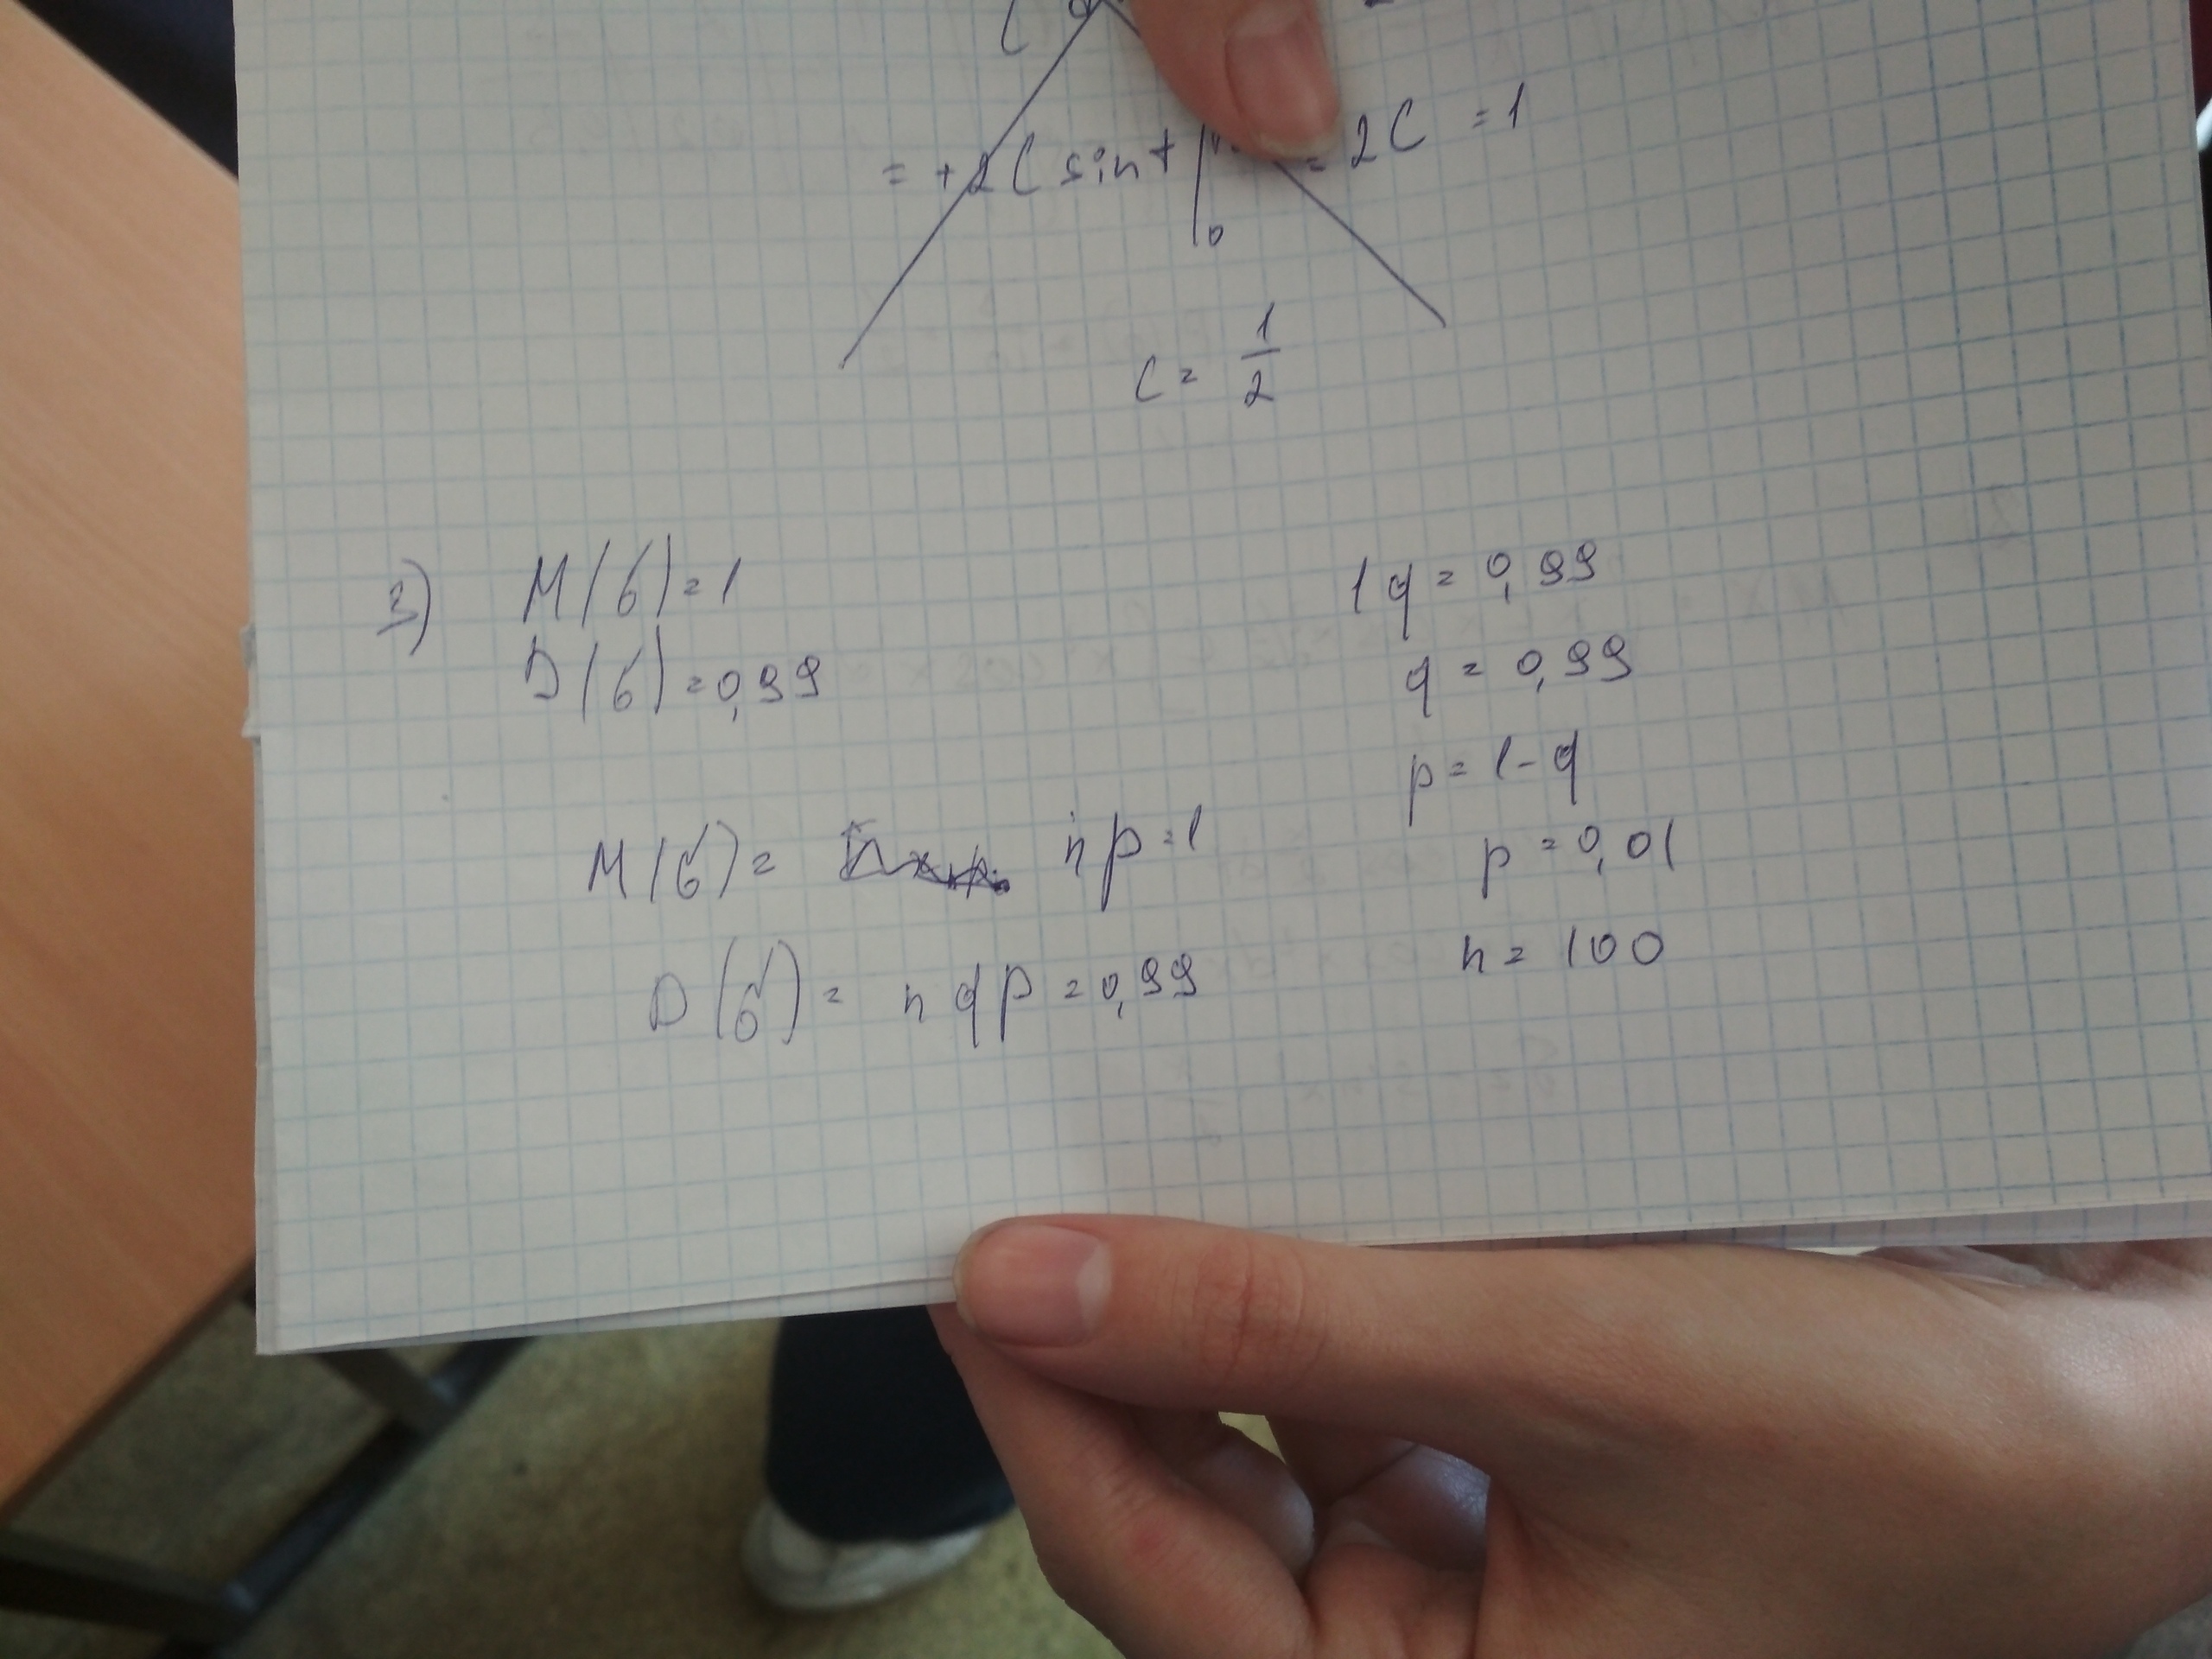 = +2C sin t | 0 = 2C = 1
C = 1/2
3) M(σ) = 1
D(σ) = 0,99
M(σ) = np = 1
D(σ) = nqp = 0,99
1q = 0,99
q = 0,99
p = 1 - q
p = 0,01
n = 100